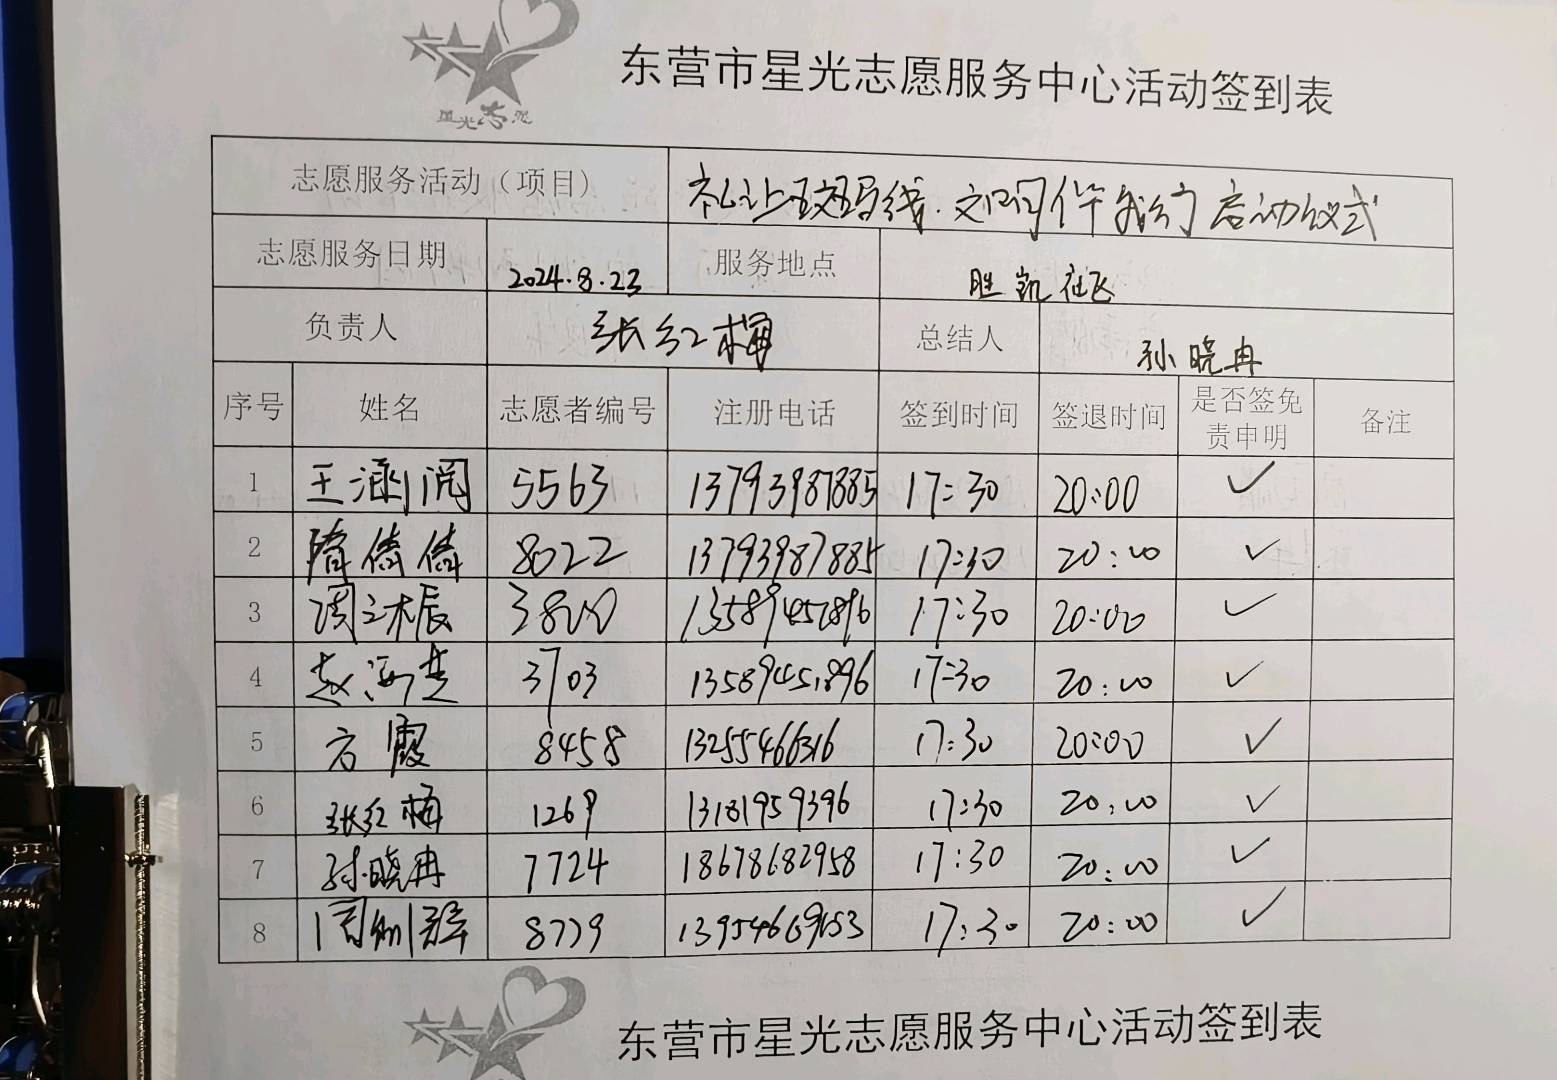 星光志愿
东营市星光志愿服务中心活动签到表
志愿服务活动（项目） 礼让斑马线.文明伴我行启动仪式
志愿服务日期 2024.8.23 服务地点 胜凯
负责人 张红梅 总结人 孙晓冉
序号 姓名 志愿者编号 注册电话 签到时间 签退时间 是否签免责申明 备注
1 王涵润 5563 13793987885 17:30 20:00 ✓
2 隋倩倩 8022 13793987885 17:30 20:00 ✓
3 周立振 3800 13589451896 17:30 20:00 ✓
4 赵海 3703 13589451896 17:30 20:00 ✓
5 方霞 8458 13255466316 17:30 20:00 ✓
6 张红梅 1269 13181959396 17:30 20:00 ✓
7 孙晓冉 7724 18678682958 17:30 20:00 ✓
8 8779 17:30 20:00 ✓
东营市星光志愿服务中心活动签到表